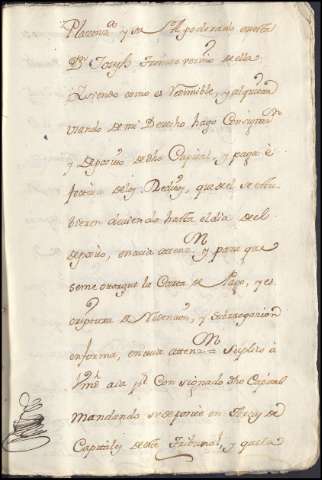 y su Apoderado en esta
Dn Joseph vezino de ella
siendo como es redimible, y al quitar
usando de mi Derecho hago Consignon
y Deposito de dho Capital, y paga
de los Reditos, que de el se estu
bieren deviendo hasta el dia de el
deposito, en cuia atten.n y para que
seme otorgue la Carta de Pago, y es
criptura de Redencion, y
en forma, en cuia atten.n = Suplico à
Vmd aia pr Consignado dho Capital
mandando se deposite en Arcas de
Capitales de este Tribunal, y que la